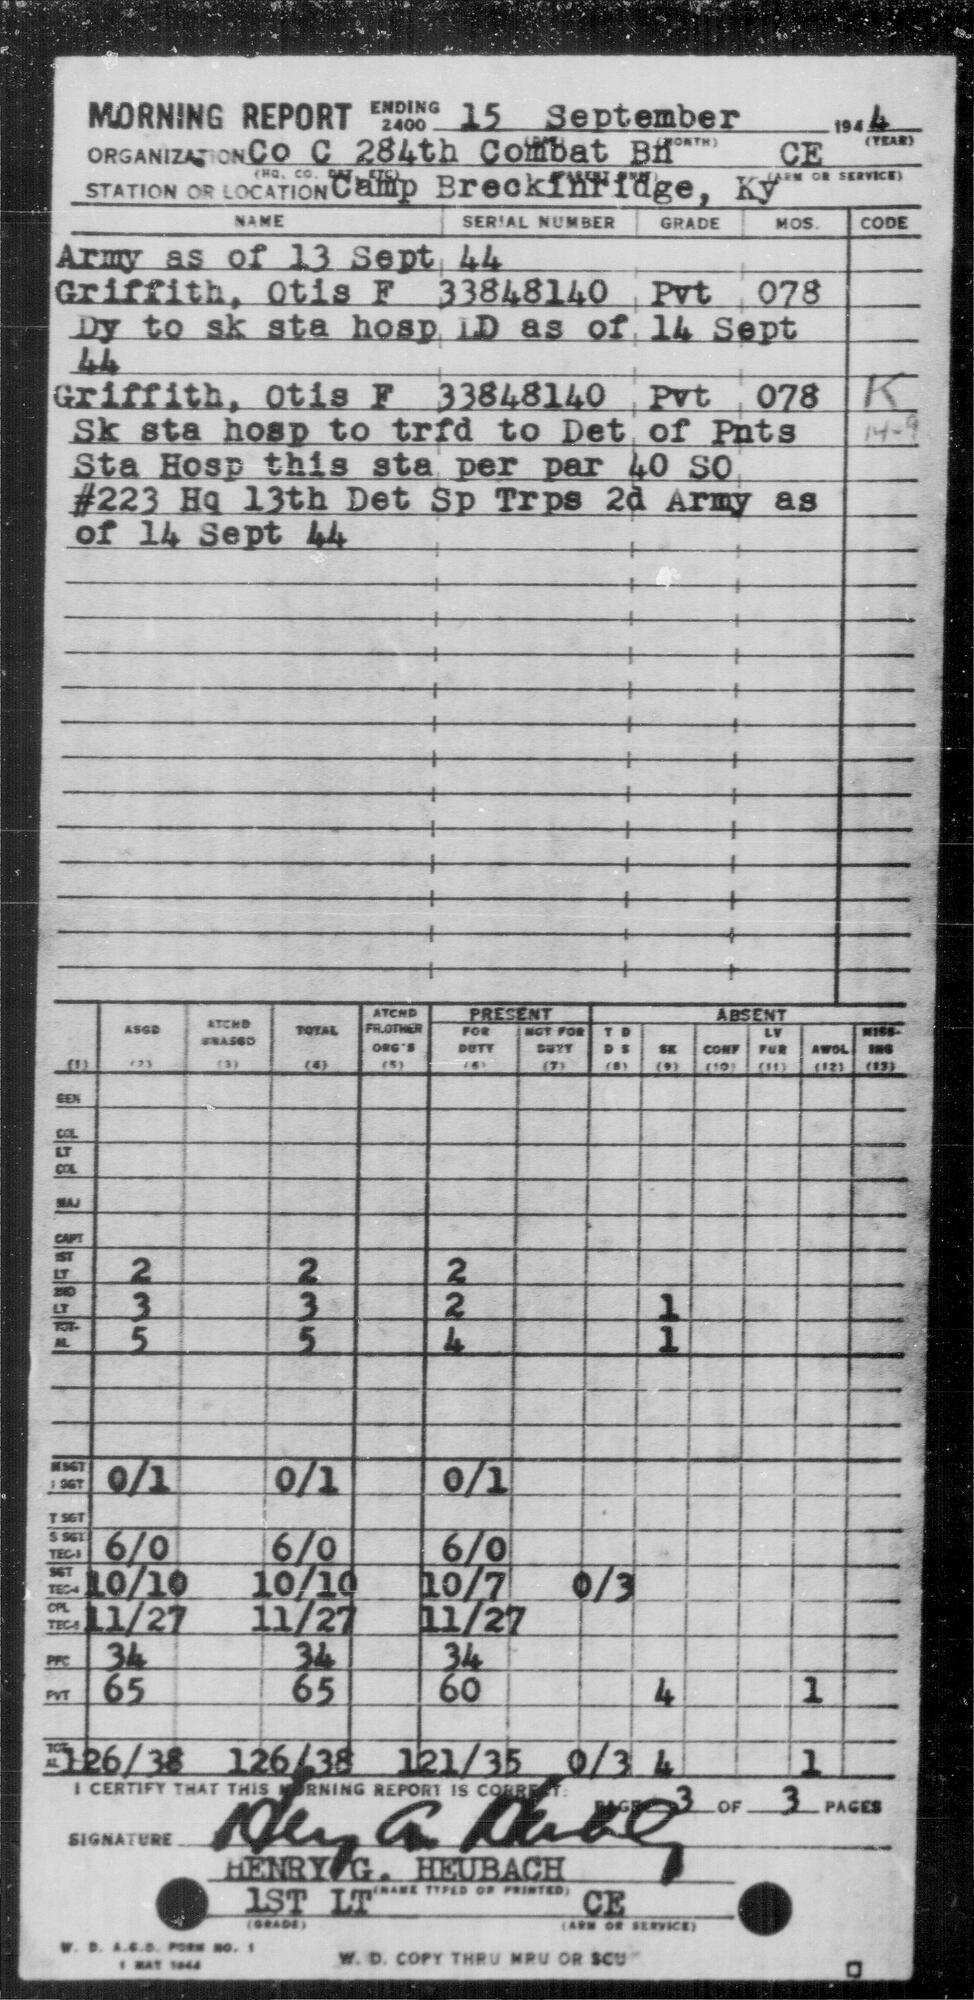 MORNING REPORT ENDING 2400 15 September 1944
(DAY) (MONTH) (YEAR)
ORGANIZATION Co C 284th Combat Bn CE
(HQ. CO. DET. ETC) (PARENT UNIT) (ARM OR SERVICE)
STATION OR LOCATION Camp Breckinridge, Ky
NAME SERIAL NUMBER GRADE MOS. CODE
Army as of 13 Sept 44
Griffith, Otis F 33848140 Pvt 078
Dy to sk sta hosp LD as of 14 Sept
44
Griffith, Otis F 33848140 Pvt 078 K
Sk sta hosp to trfd to Det of Pnts 14-9
Sta Hosp this sta per par 40 SO
#223 Hq 13th Det Sp Trps 2d Army as
of 14 Sept 44
ATCHD PRESENT ABSENT
ASGD ATCHD UNASGD TOTAL FR.OTHER ORG'S FOR DUTY NOT FOR DUTY T D D S SK CONF LV FUR AWOL MISS-ING
(1) (2) (3) (4) (5) (6) (7) (8) (9) (10) (11) (12) (13)
GEN
COL
LT COL
MAJ
CAPT
1ST LT 2 2 2
2ND LT 3 3 2 1
TOT-AL 5 5 4 1
M SGT 1 SGT 0/1 0/1 0/1
T SGT
S SGT TEC-3 6/0 6/0 6/0
SGT TEC-4 10/10 10/10 10/7 0/3
CPL TEC-5 11/27 11/27 11/27
PFC 34 34 34
PVT 65 65 60 4 1
TOT-AL 126/38 126/38 121/35 0/3 4 1
I CERTIFY THAT THIS MORNING REPORT IS CORRECT:
PAGE 3 OF 3 PAGES
SIGNATURE
HENRY G. HEUBACH
(NAME TYPED OR PRINTED)
1ST LT CE
(GRADE) (ARM OR SERVICE)
W. D. A.G.O. FORM NO. 1
1 MAY 1944
W. D. COPY THRU MRU OR SCU